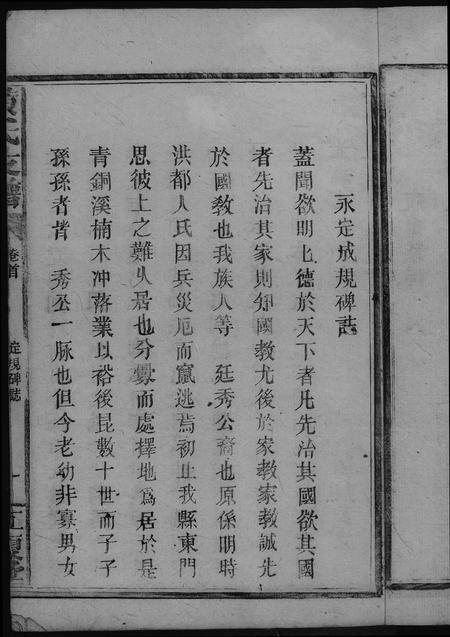 永定成規碑誌
蓋聞欲明明德於天下者凡先治其國欲其國
者先治其家則知國教尤後於家教家教誠先
於國教也我族人等 廷秀公裔也原係明時
洪都人氏因兵災厄而竄逃焉初止我縣東門
思彼上之難久居也分爨而處擇地為居於是
青銅溪楠木冲落業以裕後昆數十世而子子
孫孫者皆 秀公一脉也但今老幼非寡男女
氏支譜
卷首
定規碑誌